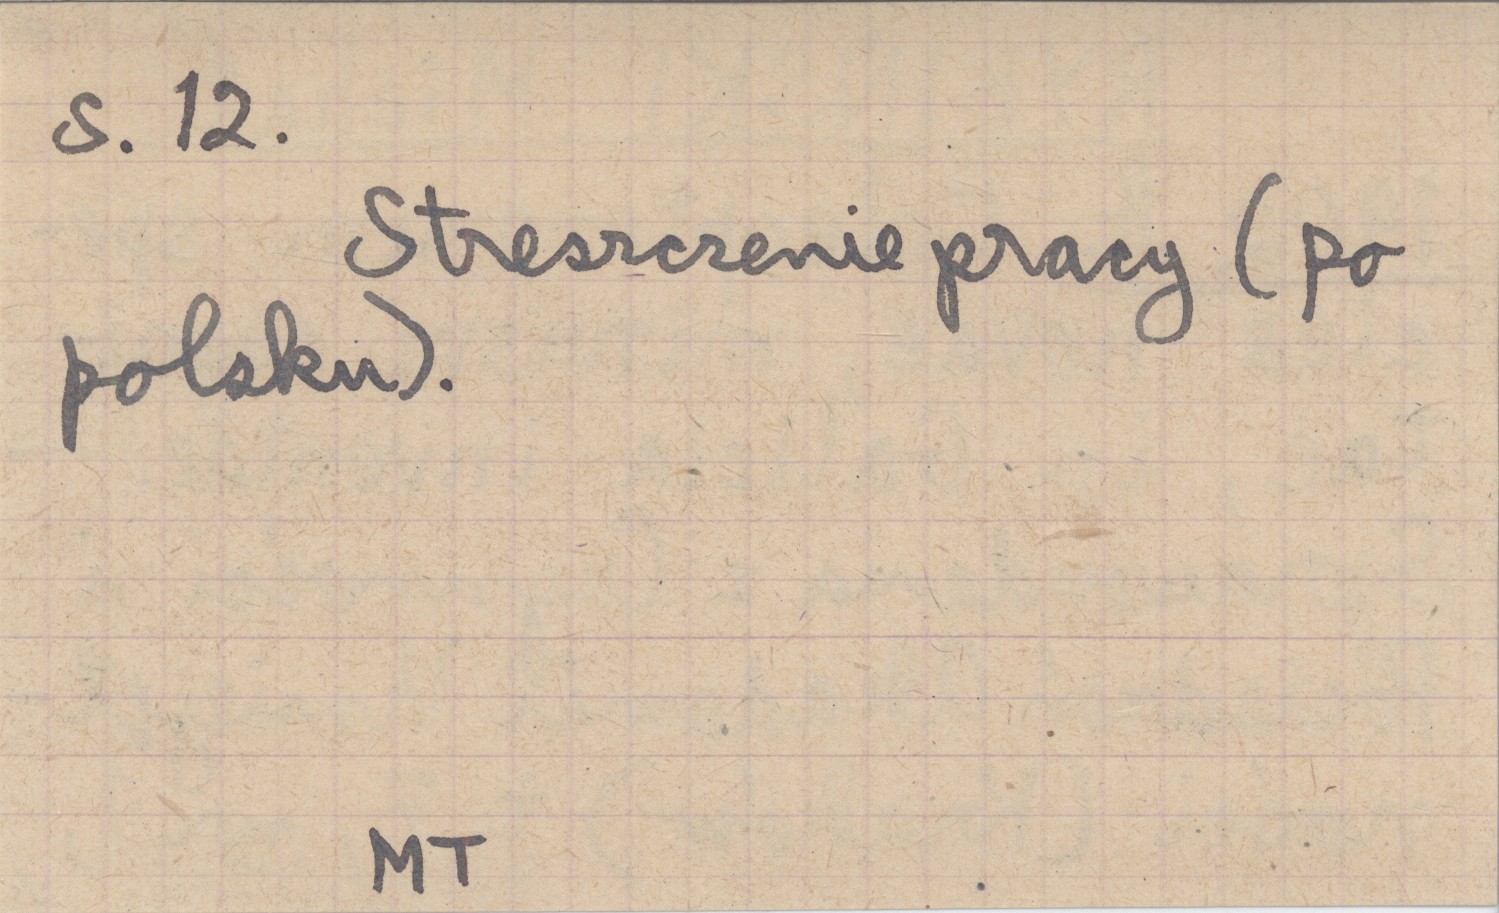 s. 12.
Streszczenie pracy (po
polsku).
MT